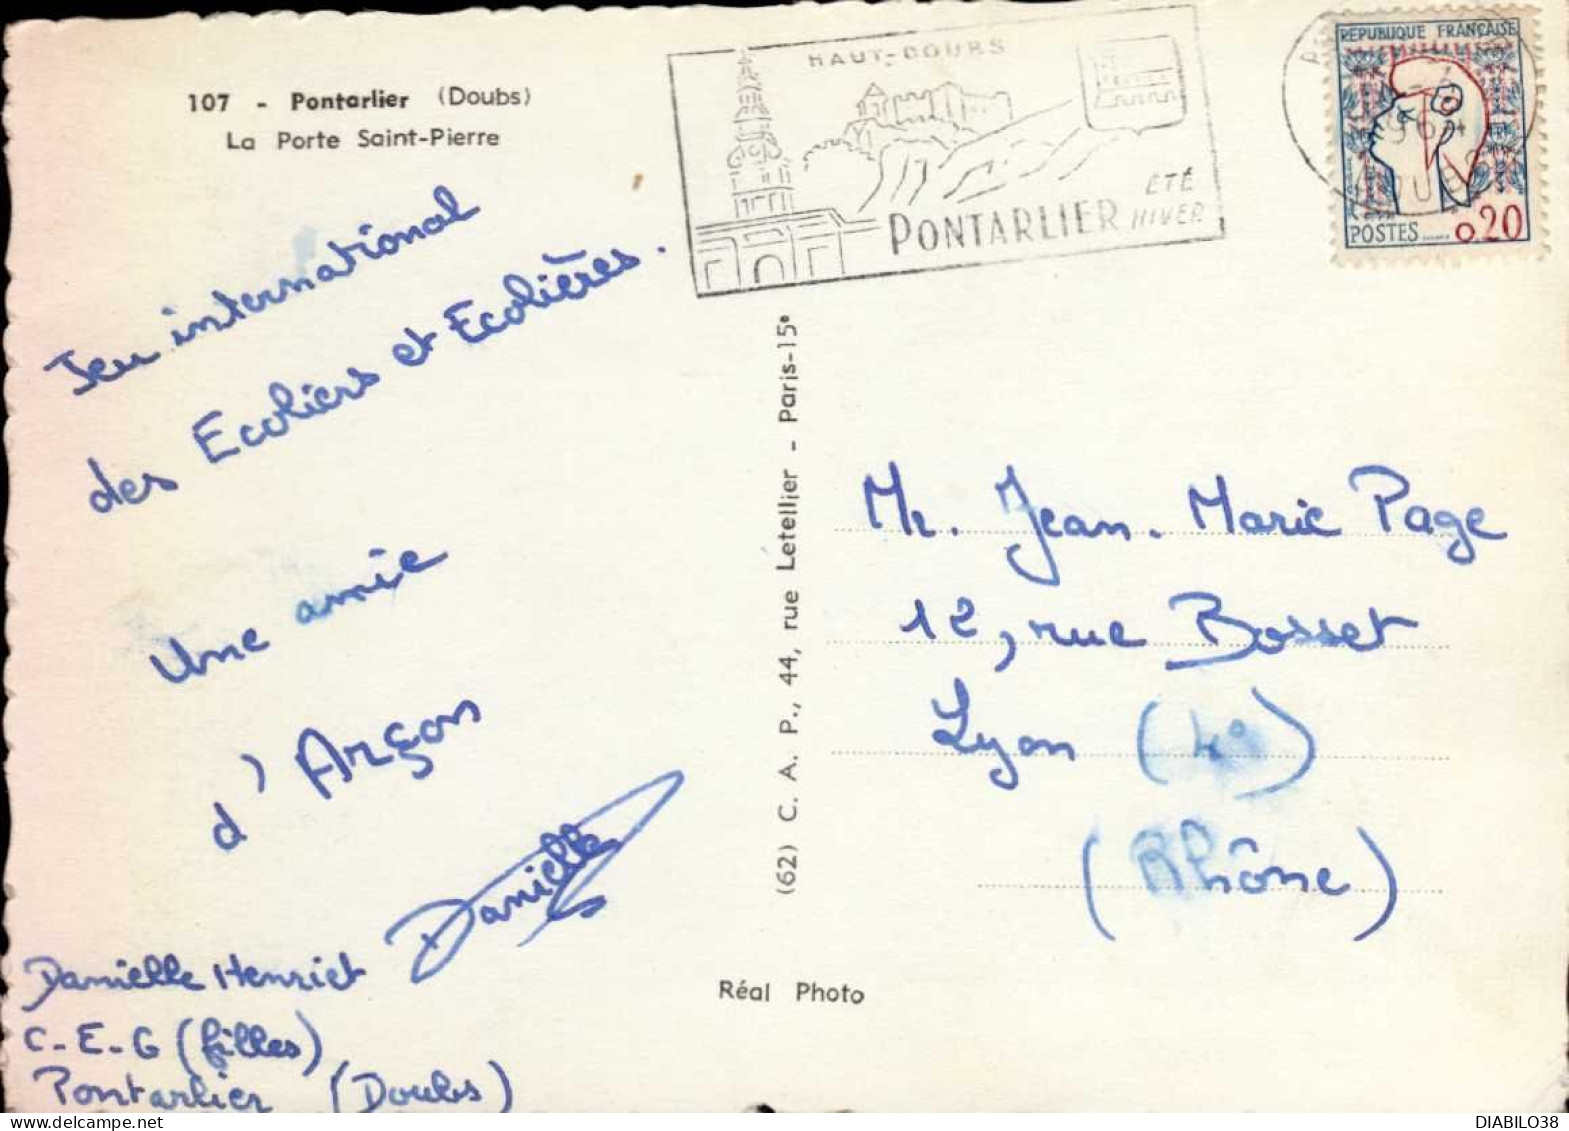 107 - Pontarlier (Doubs)
La Porte Saint-Pierre
HAUT-DOUBS
PONTARLIER
ÉTÉ
HIVER
REPUBLIQUE FRANÇAISE
POSTES
0.20
Jeu international
des Ecoliers et Ecolières.
Une amie
d'Arçon
Danielle
Danielle Henriet
C-E-G (filles)
Pontarlier (Doubs)
(62) C. A. P., 44, rue Letellier - Paris-15e
Réal Photo
Mr. Jean-Marie Page
12, rue Bosset
Lyon (4°)
(Rhône)
DIABILO38